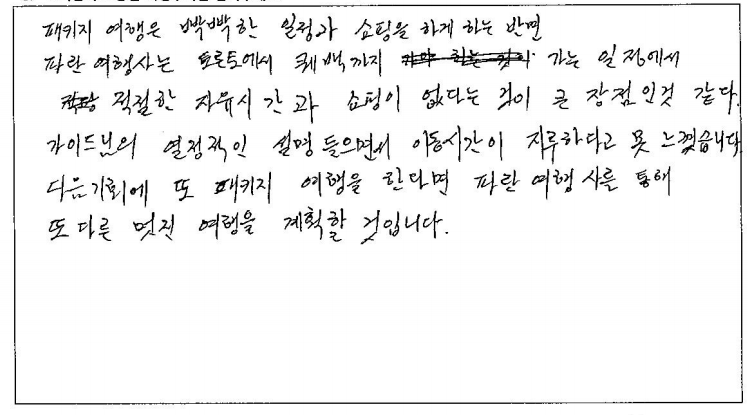 패키지 여행은 빡빡한 일정과 쇼핑을 하게 하는 반면
파란 여행사는 토론토에서 퀘백까지 가는 일정에서
적절한 자유시간과 쇼핑이 없다는 것이 큰 장점인것 같다.
가이드님의 열정적인 설명 들으면서 이동시간이 지루하다고 못 느꼈습니다
다음기회에 또 패키지 여행을 한다면 파란 여행사를 통해
또 다른 멋진 여행을 계획할 것입니다.